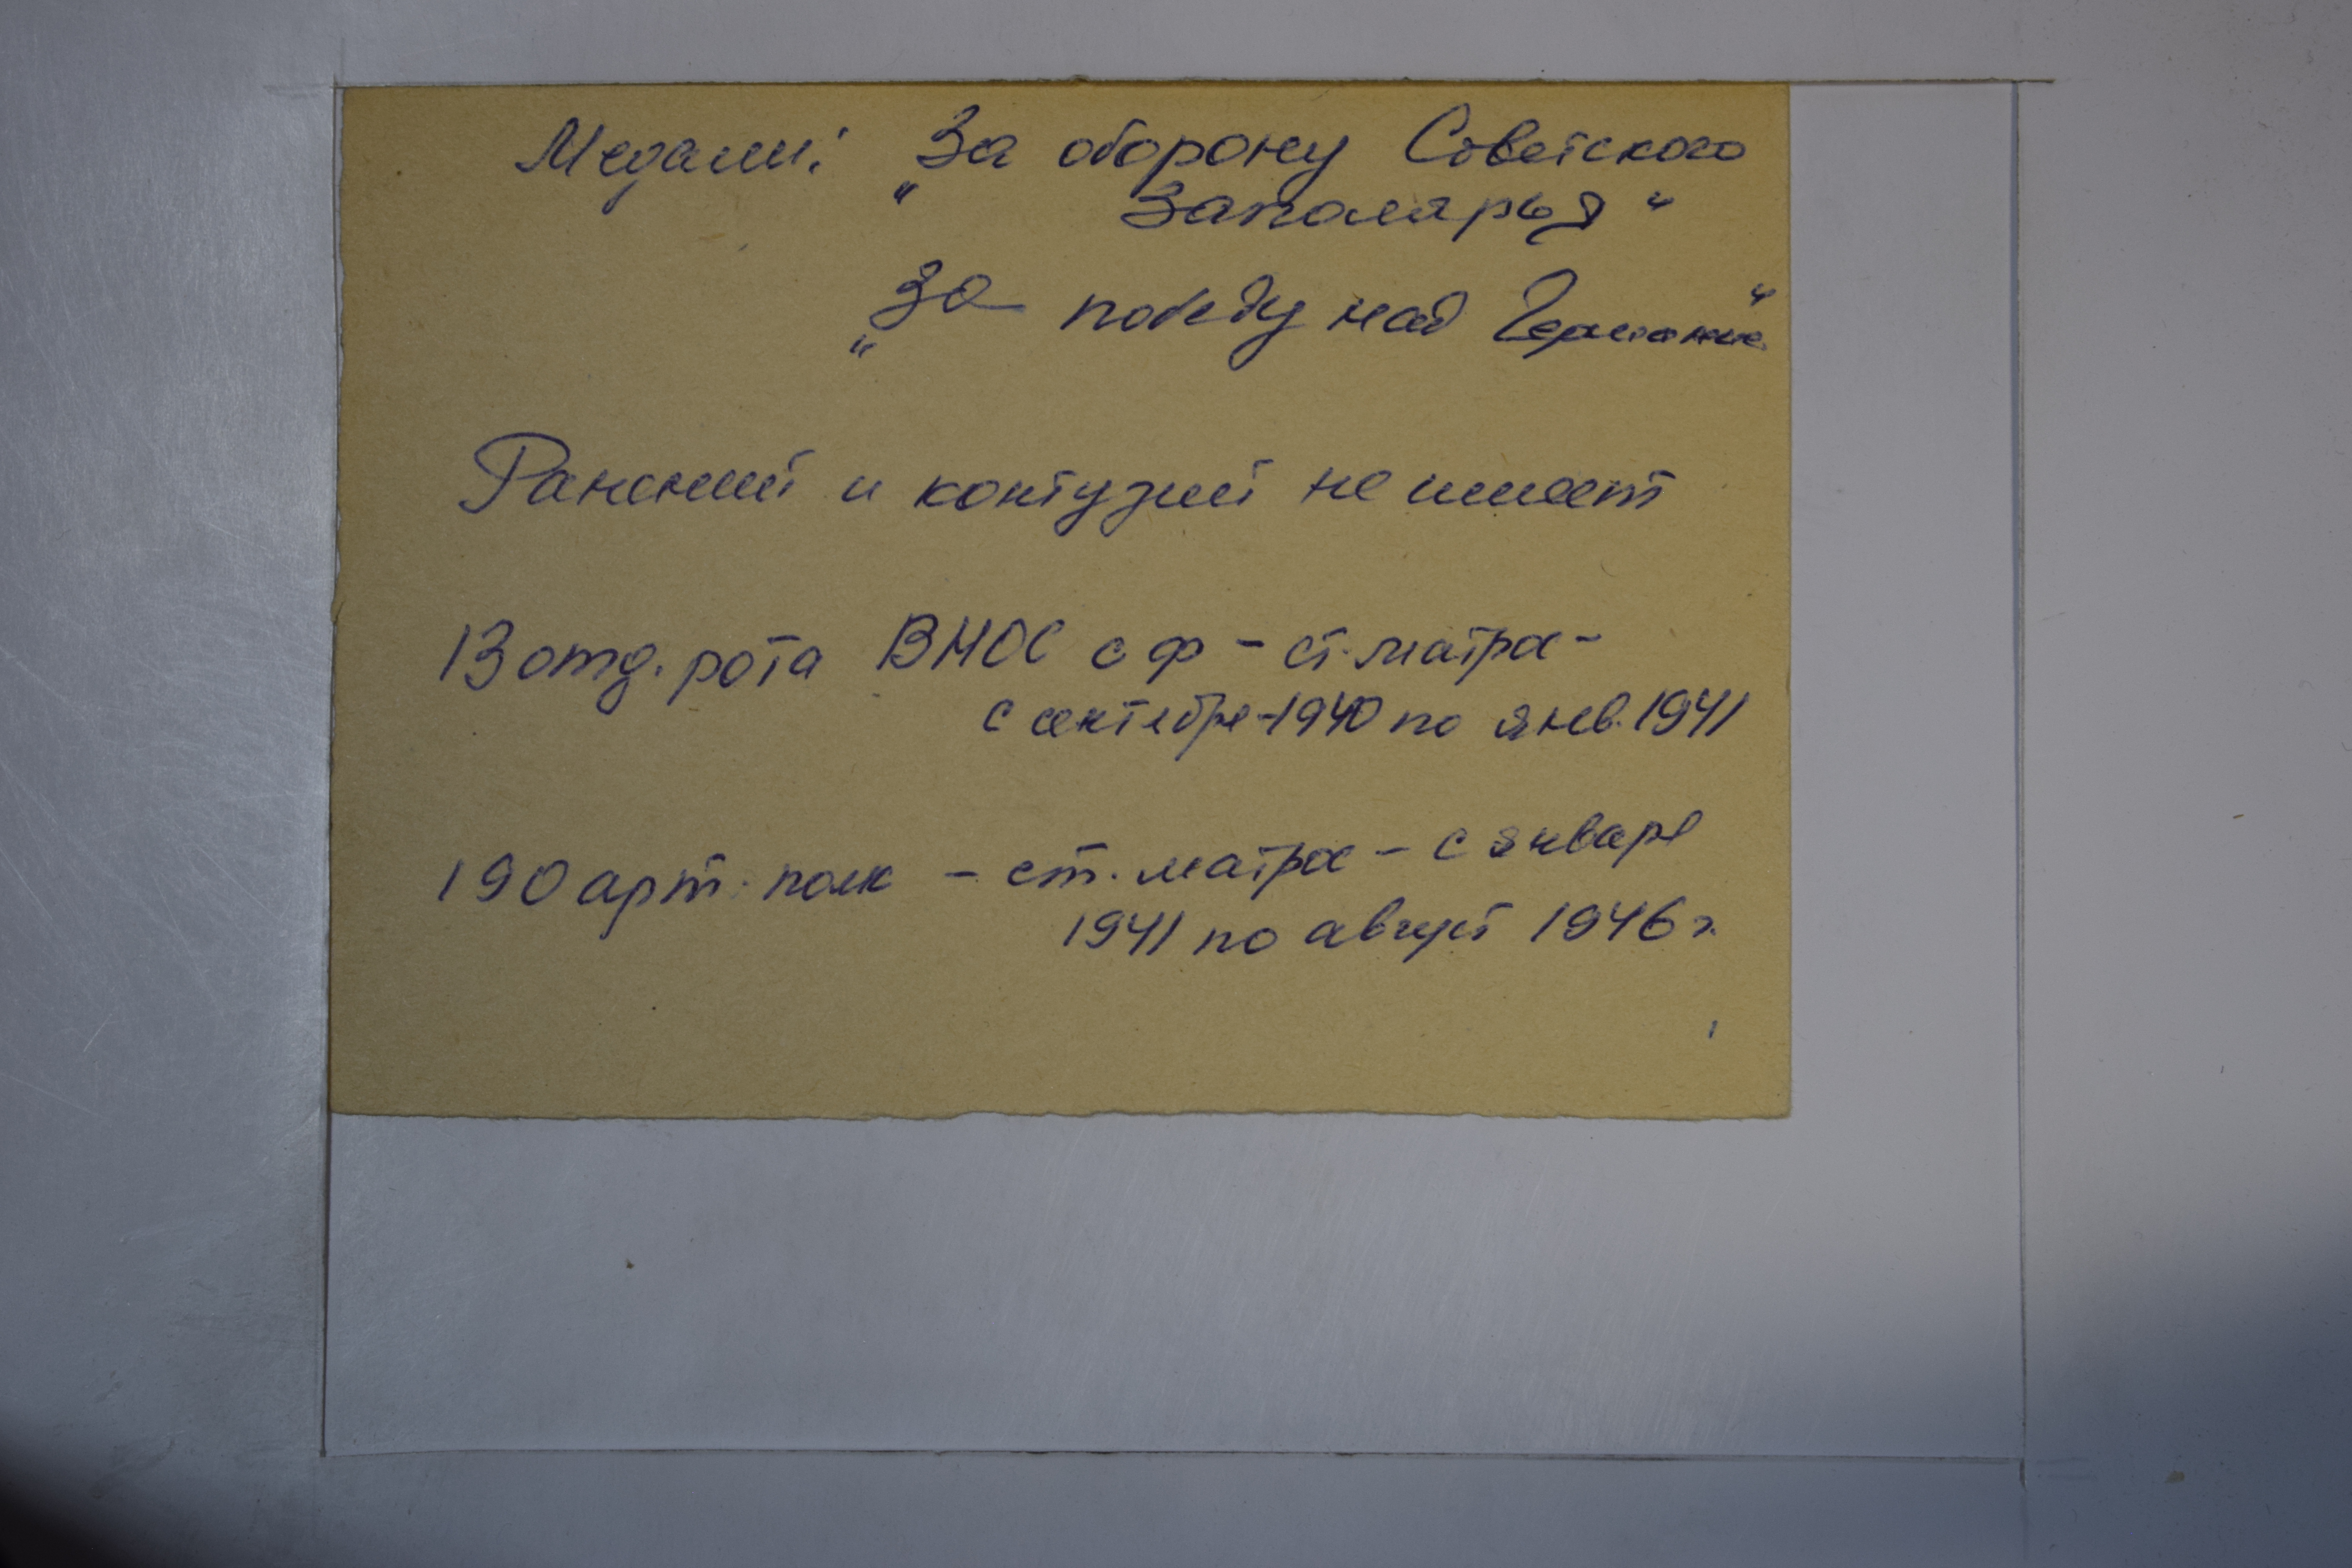 Медали: „За оборону Советского
Заполярья“
„За победу над Германией“
Ранений и контузий не имеет
13 отд. рота ВНОС СФ - ст. матрос -
с сентября - 1940 по янв. 1941
190 арт. полк - ст. матрос - с января
1941 по август 1946 г.